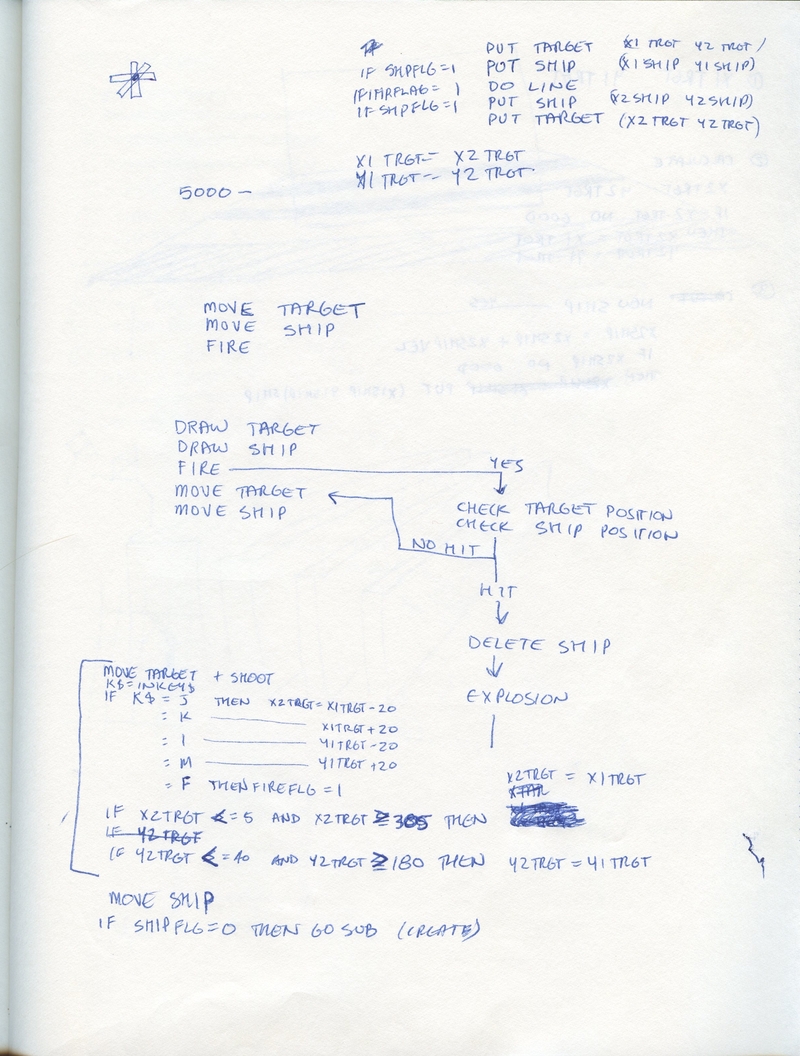 PUT TARGET (X1 TRGT Y2 TRGT/
IF SHPFLG=1 PUT SHIP (X1SHIP Y1SHIP)
IF FIRFLAG= 1 DO LINE
IF SHPFLG=1 PUT SHIP (X2SHIP Y2SHIP)
PUT TARGET (X2TRGT Y2TRGT)
X1 TRGT= X2 TRGT
Y1 TRGT= Y2 TRGT
5000 —
MOVE TARGET
MOVE SHIP
FIRE
DRAW TARGET
DRAW SHIP
FIRE YES
MOVE TARGET
MOVE SHIP
CHECK TARGET POSITION
CHECK SHIP POSITION
NO HIT
HIT
DELETE SHIP
EXPLOSION
MOVE TARGET + SHOOT
K$=INKEY$
IF K$ = J THEN X2TRGT=X1TRGT-20
= K X1TRGT+20
= I Y1TRGT-20
= M Y1TRGT+20
= F THEN FIREFLG =1
X2TRGT = X1TRGT
IF X2TRGT <=5 AND X2TRGT ≥305 THEN
IF Y2TRGT
IF Y2TRGT <=40 AND Y2TRGT ≥180 THEN Y2TRGT = Y1TRGT
MOVE SHIP
IF SHIPFLG=0 THEN GO SUB (CREATE)